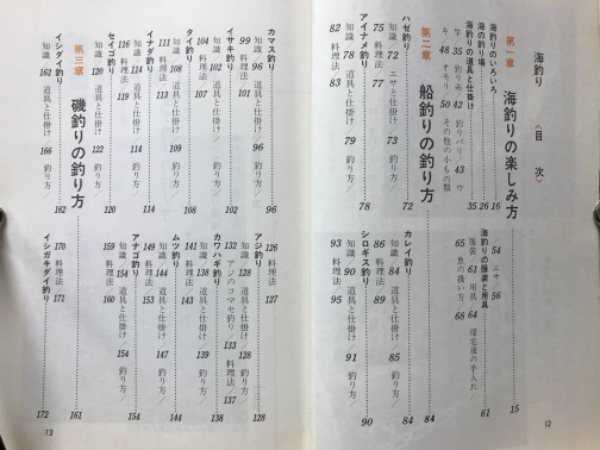 海釣り 〈目次〉
第一章 海釣りの楽しみ方……15
海釣りのいろいろ……16
海の釣り場……26
海釣りの道具と仕掛け……35
竿/35 釣り糸/42 釣りバリ/43 ウ
キ/48 オモリ/50 その他の小もの類
/54 エサ/56
海釣りの服装と用具……61
服装/61 用具/64 帰宅後の手入れ
65 魚の扱い方/68
第二章 船釣りの釣り方……84
ハゼ釣り……72
知識/72 エサと仕掛け/73 釣り方/
75 料理法/77
アイナメ釣り……78
知識/78 道具と仕掛け/79 釣り方/
82 料理法/83
カレイ釣り……84
知識/84 道具と仕掛け/85 釣り方/
86 料理法/89
シロギス釣り……90
知識/90 道具と仕掛け/91 釣り方/
93 料理法/95
12
カマス釣り……96
知識/96 道具と仕掛け/96 釣り方/
99 料理法/101
イサキ釣り……102
知識/102 道具と仕掛け/102 釣り方/
104 料理法/107
タイ釣り……108
知識/108 道具と仕掛け/109 釣り方/
111 料理法/113
イナダ釣り……114
知識/114 道具と仕掛け/114 釣り方/
116 料理法/119
セイゴ釣り……120
知識/120 道具と仕掛け/122 釣り方/
126 料理法/127
アジ釣り……128
知識/128 道具と仕掛け/128 釣り方/
132 アジのコマセ釣り/133 料理法/137
カワハギ釣り……138
知識/138 道具と仕掛け/139 釣り方/
141 料理法/143
ムツ釣り……144
知識/144 道具と仕掛け/147 釣り方/
149 料理法/153
アナゴ釣り……154
知識/154 道具と仕掛け/154 釣り方/
159 料理法/160
第三章 磯釣りの釣り方……161
イシダイ釣り……162
知識/162 道具と仕掛け/166 釣り方/
170 料理法/171
イシガキダイ釣り……172
13